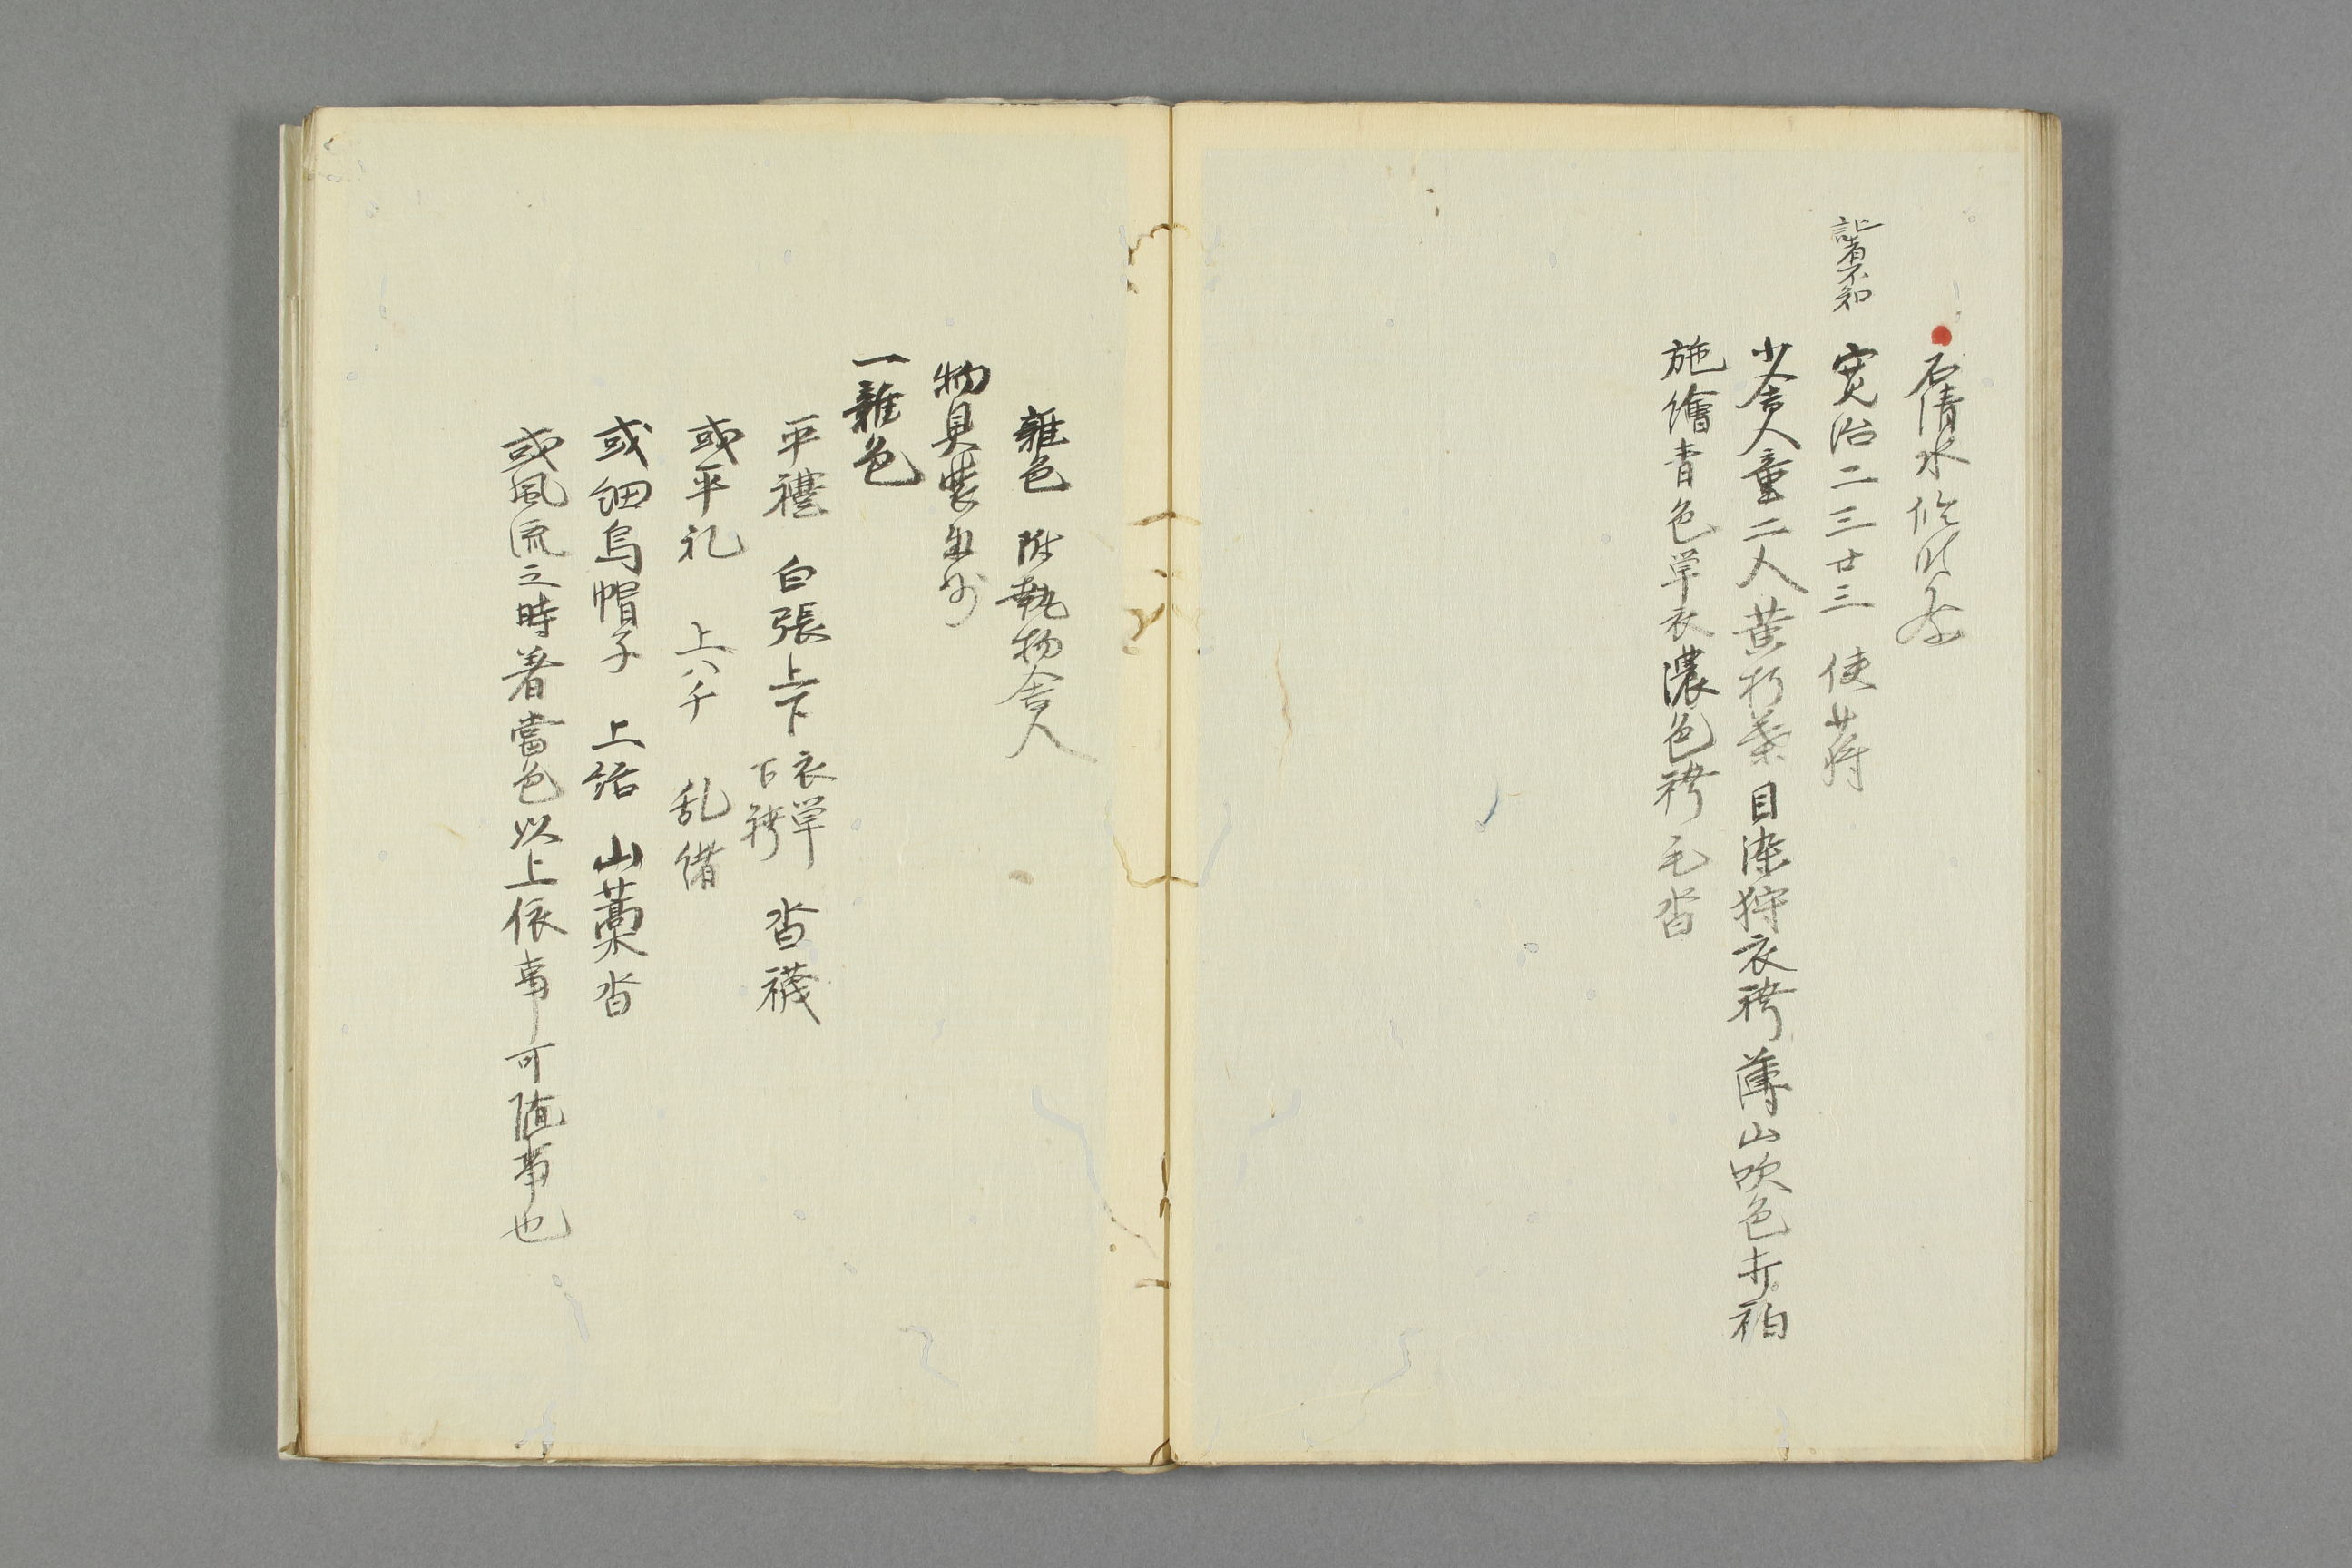 石清水臨時祭
記者不知
寛治二三廿三 使蒋
少舎人童二人黄朽葉目染狩衣袴薄山吹色打衵
施繪青色単衣濃色袴毛沓
雜色 附執物舎人
物具裝束抄
一雜色
平禮 白張上下 衣単下袴 沓襪
或平礼 上八千 乱緒
或細烏帽子 上結 山藁沓
或風流之時著當色以上依事可随事也